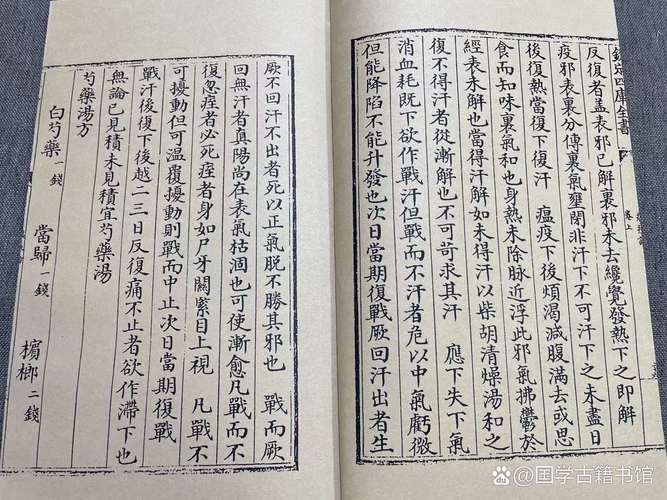 欽定四庫全書
卷上
反復者蓋表邪已解裏邪未去纔覺發熱下之即解
疫邪表裏分傳裏氣壅閉非汗下不可汗下之未盡日
後復熱當復下復汗 瘟疫下後煩渴減腹滿去或思
食而知味裏氣和也身熱未除脉近浮此邪氣拂鬱於
經表未解也當得汗解如未得汗以柴胡清燥湯和之
復不得汗者從漸解也不可苛求其汗 應下失下氣
消血耗既下欲作戰汗但戰而不汗者危以中氣虧微
但能降陷不能升發也次日當期復戰厥回汗出者生
厥不回汗不出者死以正氣脫不勝其邪也 戰而厥
回無汗者真陽尚在表氣枯涸也可使漸愈凡戰而不
復忽痓者必死痓者身如尸牙關緊目上視 凡戰不
可擾動但可溫覆擾動則戰而中止次日當期復戰
戰汗後復下後越二三日反復痛不止者欲作滯下也
無論已見積未見積宜芍藥湯
芍藥湯方
白芍藥一錢 當歸一錢 檳榔二錢
国学古籍书馆